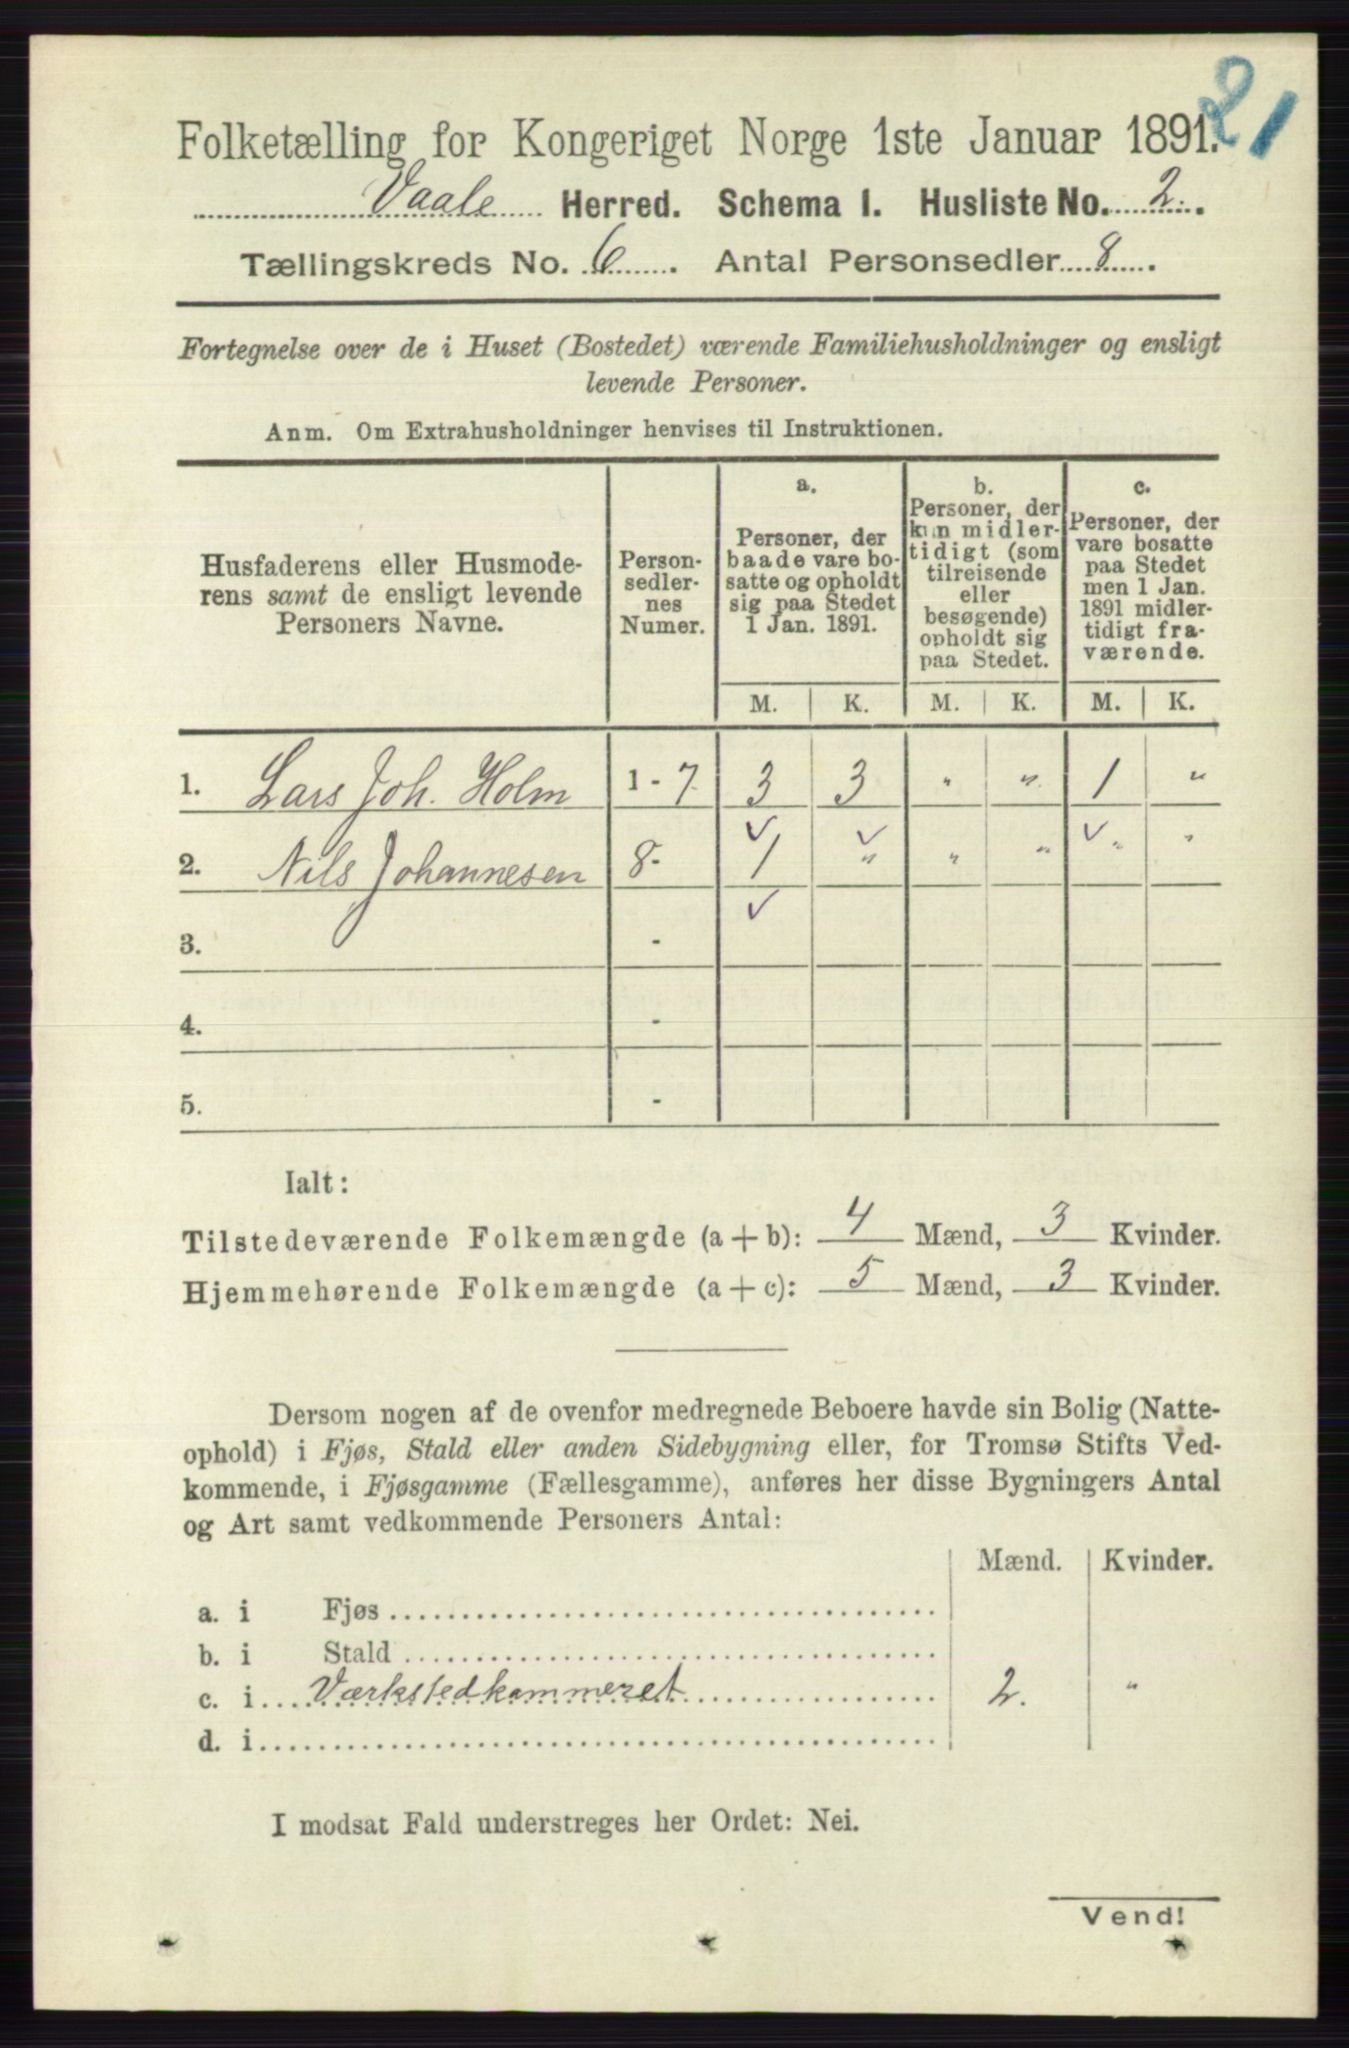 21
Folketælling for Kongeriget Norge 1ste Januar 1891.
Vaale Herred. Schema 1. Husliste No. 2.
Tællingskreds No. 6. Antal Personsedler 8.
Fortegnelse over de i Huset (Bostedet) værende Familiehusholdninger og ensligt
levende Personer.
Anm. Om Extrahusholdninger henvises til Instruktionen.
Husfaderens eller Husmode-
rens samt de ensligt levende
Personers Navne.
Person-
sedler-
nes
Numer.
a.
Personer, der
baade vare bo-
satte og opholdt
sig paa Stedet
1 Jan. 1891.
b.
Personer, der
kun midler-
tidigt (som
tilreisende
eller
besøgende)
opholdt sig
paa Stedet.
c.
Personer, der
vare bosatte
paa Stedet
men 1 Jan.
1891 midler-
tidigt fra-
værende.
M. K. M. K. M. K.
1. Lars Joh. Holm 1 - 7 3 3 " " 1 "
✓ ✓ ✓
2. Nils Johannesen 8 - 1 " " " " "
✓
3. -
4. -
5. -
Ialt:
Tilstedeværende Folkemængde (a + b): 4 Mænd, 3 Kvinder.
Hjemmehørende Folkemængde (a + c): 5 Mænd, 3 Kvinder.
Dersom nogen af de ovenfor medregnede Beboere havde sin Bolig (Natte-
ophold) i Fjøs, Stald eller anden Sidebygning eller, for Tromsø Stifts Ved-
kommende, i Fjøsgamme (Fællesgamme), anføres her disse Bygningers Antal
og Art samt vedkommende Personers Antal:
Mænd. Kvinder.
a. i Fjøs
b. i Stald
c. i Værkstedkammeret 2. "
d. i
I modsat Fald understreges her Ordet: Nei.
Vend!